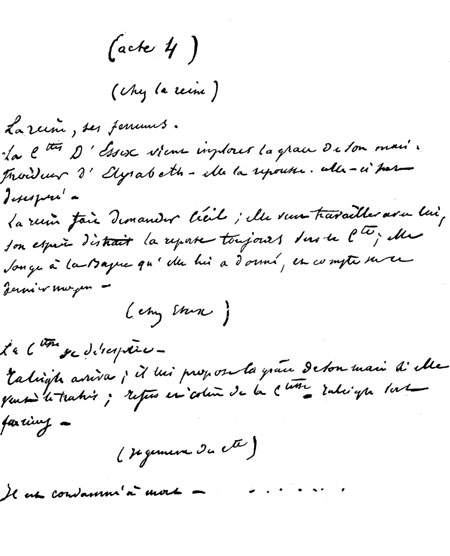 (acte 4)
(chez la reine)
La reine, ses femmes.
La Ctesse D'Essex vient implorer la grace de son mari.
froideur d'Elysabeth — elle la repousse. elle-ci sort
desespéré —
La reine fait demander Cécil ; elle veut travailler avec lui,
son esprit distrait la reporte toujours vers le Cte ; elle
songe à la Bague qu'elle lui a donné, et compte sur ce
dernier moyen —
(chez Essex)
La Ctesse se désespère —
Raleigh arrive ; il lui propose la grâce de son mari si elle
veut le trahir ; refus et colère de la Ctesse — Raleigh sort
furieux —
(Jugement du Cte)
Il est condamné à mort — . . . . . .